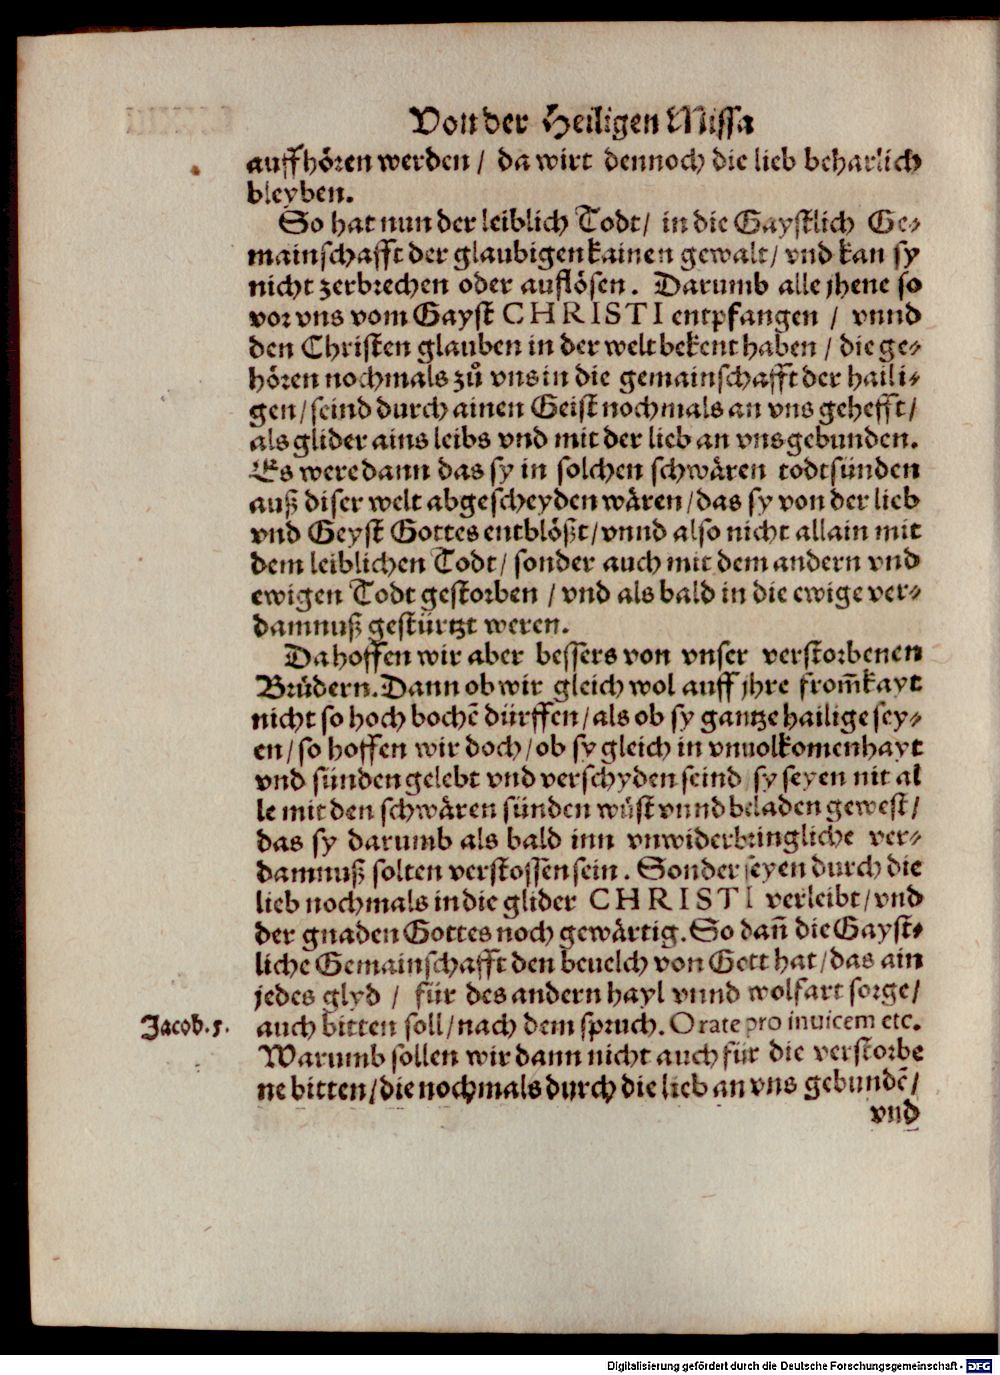 Von der Heiligen Missa
auffhören werden / da wirt dennoch die lieb beharlich
bleyben.
So hat nun der leiblich Todt / in die Gaystlich Ge⸗
mainschafft der glaubigen kainen gewalt / vnd kan sy
nicht zerbrechen oder auflösen. Darumb alle jhene so
vor vns vom Gayst CHRISTI entpfangen / vnnd
den Christen glauben in der welt bekent haben / die ge⸗
hören nochmals zů vns in die gemainschafft der haili⸗
gen / seind durch ainen Geist nochmals an vns gehefft /
als glider ains leibs vnd mit der lieb an vns gebunden.
Es were dann das sy in solchen schwären todtsünden
auß diser welt abgescheyden wären / das sy von der lieb
vnd Geyst Gottes entblößt / vnnd also nicht allain mit
dem leiblichen Todt / sonder auch mit dem andern vnd
ewigen Todt gestorben / vnd als bald in die ewige ver⸗
damnuß gestürtzt weren.
Da hoffen wir aber bessers von vnser verstorbenen
Brüdern. Dann ob wir gleich wol auff jhre from̃kayt
nicht so hoch bochẽ dürffen / als ob sy gantze hailige sey⸗
en / so hoffen wir doch / ob sy gleich in vnuolkomenhayt
vnd sünden gelebt vnd verschyden seind / sy seyen nit al
le mit den schwären sünden wüst vnnd beladen gewest /
das sy darumb als bald inn vnwiderbringliche ver⸗
damnuß solten verstossen sein. Sonder seyen durch die
lieb nochmals in die glider CHRISTI verleibt / vnd
der gnaden Gottes noch gewärtig. So dañ die Gayst⸗
liche Gemainschafft den beuelch von Gott hat / das ain
jedes glyd / für des andern hayl vnnd wolfart sorge /
Jacob. 5. auch bitten soll / nach dem spruch. Orate pro inuicem etc.
Warumb sollen wir dann nicht auch für die verstorbe
ne bitten / die nochmals durch die lieb an vns gebundẽ /
vnd
Digitalisierung gefördert durch die Deutsche Forschungsgemeinschaft - DFG